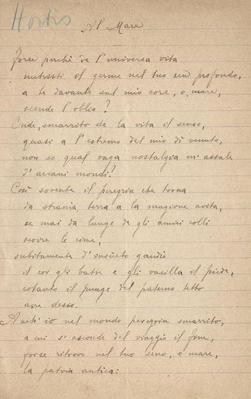 Hortis
Al Mare
Forse perchè de l'universa vita
nutristi il germe nel tuo sen profondo,
a te davante sul mio core, o mare,
scende l'oblio?
Onde, smarrito de la vita il senso,
quasi a l'estremo del mio dì venuto,
non so qual vaga nostalgia m'assale
d'arcani mondi?
Così sovente il peregrin che torna
da strania terra a la magione avita,
se mai da lunge de gli amici colli
scovre le cime,
subitamente d'insueto gaudio
il cor gli batte e gli vacilla il piede,
cotanto il punge del paterno tetto
acre desio.
Anch'io nel mondo peregrin smarrito,
a cui s'asconde del viaggio il fine,
forse ritrovo nel tuo seno, o mare,
la patria antica: